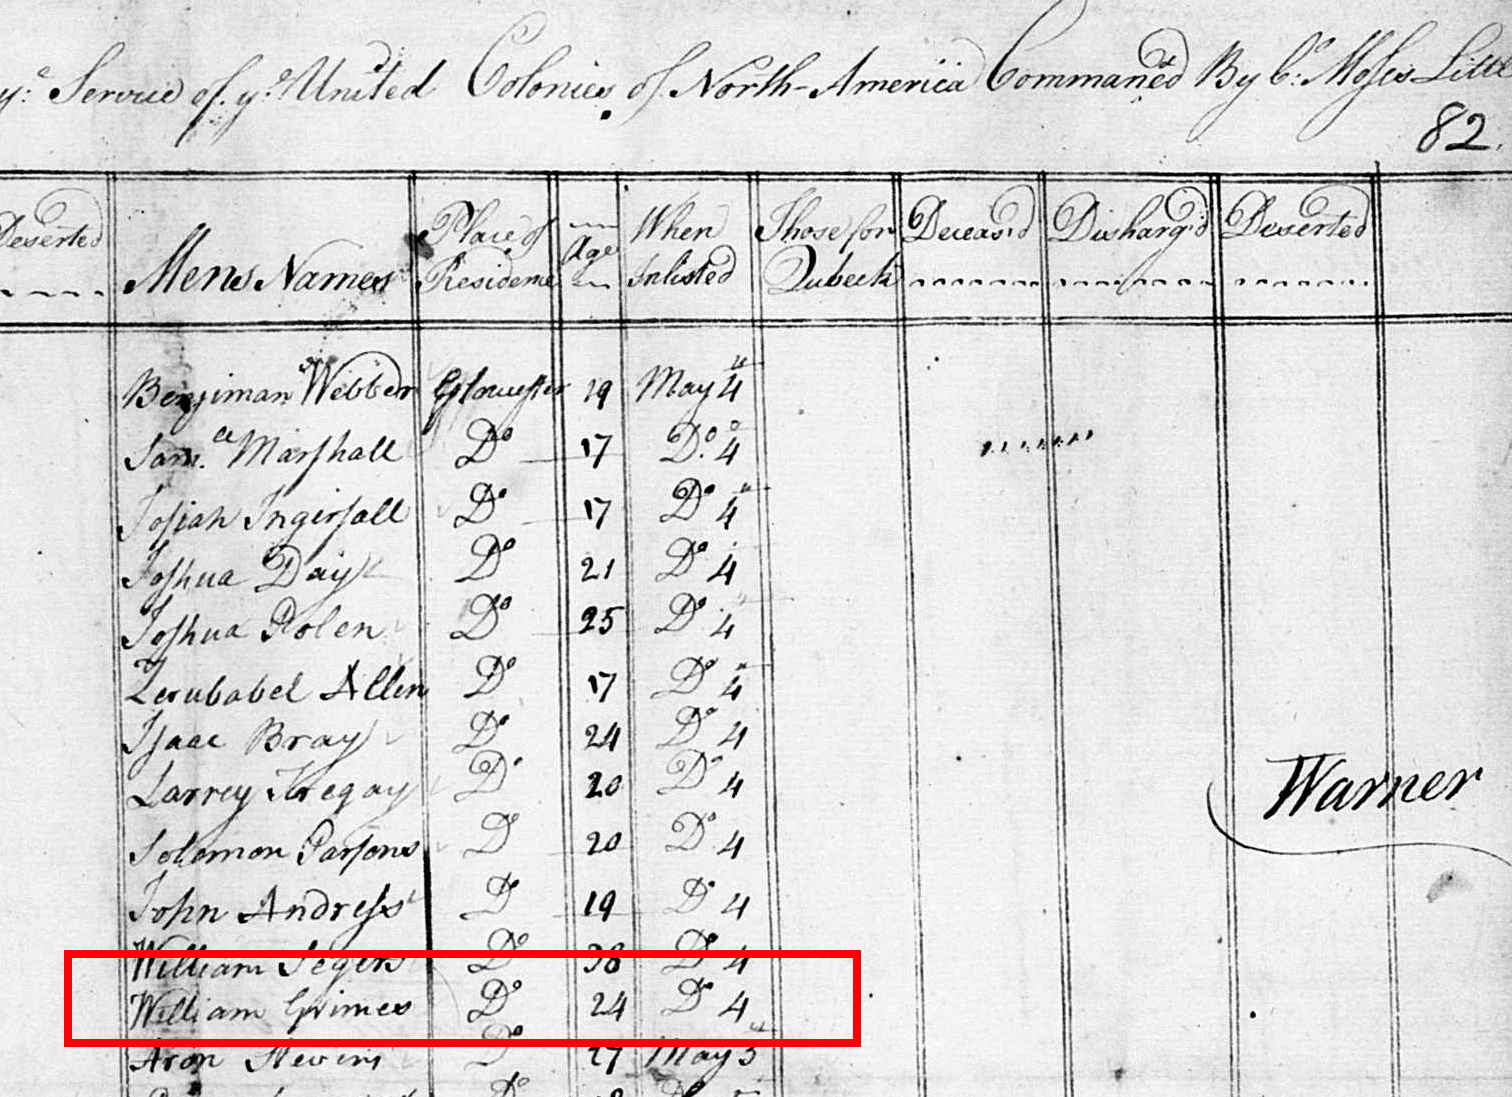 yᵉ: Service of yᵉ: United Colonies of North-America Commanded By Cº: Moses Little
82.
Deserted
Mens Names
Place of Residence
Age
When Inlisted
Those for Qubeck
Deceas'd
Discharg'd
Deserted
Benjiman Webber Glouester 19 May 4
Samˡˡ Marshall Dº 17 Dº 4
Josiah Ingersall Dº 17 Dº 4
Joshua Day Dº 21 Dº 4
Joshua Polen Dº 25 Dº 4
Zerubabel Allen Dº 17 Dº 4
Isaac Bray Dº 24 Dº 4
Larrey Tregay Dº 20 Dº 4
Solomon Parsons Dº 20 Dº 4
Warner
John Andress Dº 19 Dº 4
William Segers Dº 38 Dº 4
William Grimes Dº 24 Dº 4
Aron Stevens Dº 27 May 5